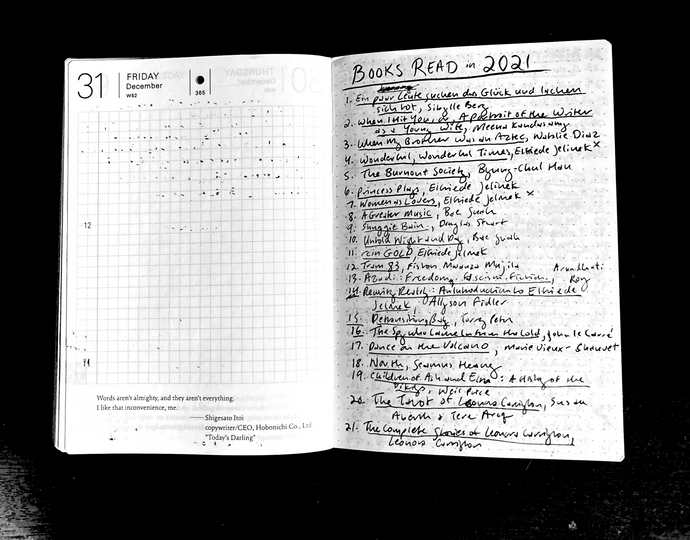 31
FRIDAY
December
W52
365
12
Words aren't almighty, and they aren't everything.
I like that inconvenience, me.
Shigesato Itoi
copywriter/CEO, Hobonichi Co., Ltd
"Today's Darling"
BOOKS READ in 2021
1. Ein paar Leute suchen das Glück und lachen
sich tot, Sibylle Berg
2. When I Hit You, or, A Portrait of the Writer
as a Young Wife, Meena Kandasamy
3. When My Brother was an Aztec, Natalie Diaz
4. Wonderful, Wonderful Times, Elfriede Jelinek x
5. The Burnout Society, Byung-Chul Han
6. Princess Plays, Elfriede Jelinek
7. Women as Lovers, Elfriede Jelinek x
8. A Greater Music, Bae Suah
9. Shuggie Bain, Douglas Stuart
10. Untold Night and Day, Bae Suah
11. rein GOLD, Elfriede Jelinek
12. Tram 83, Fiston Mwanza Mujila
13. Azadi: Freedom, Fascism, Fiction, Arundhati
Roy
14. Rewriting Reality: An Introduction to Elfriede
Jelinek, Allyson Fidler
15. Detransition, Baby, Torrey Peters
16. The Spy who Came In from the Cold, John le Carré
17. Dance on the Volcano, Marie Vieux-Chauvet
18. North, Seamus Heaney
19. Children of Ash and Elm: A History of the
Vikings, Neil Price
20. The Tarot of Leonora Carrington, Susan
Aberth & Tere Arcq
21. The Complete Stories of Leonora Carrington,
Leonora Carrington